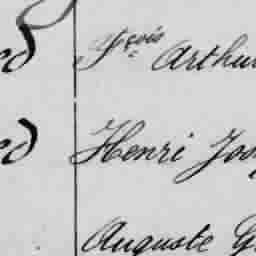 Fçois Arthu
Henri Jos
Auguste G